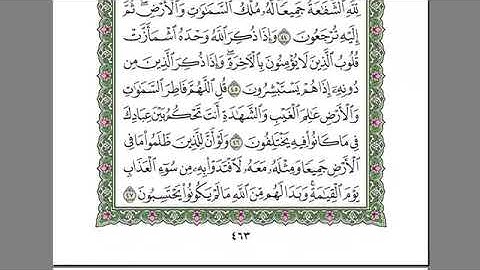 لِّلَّهِ ٱلشَّفَٰعَةُ جَمِيعًا ۖ لَّهُۥ مُلْكُ ٱلسَّمَٰوَٰتِ وَٱلْأَرْضِ ۖ ثُمَّ
إِلَيْهِ تُرْجَعُونَ ٤٤ وَإِذَا ذُكِرَ ٱللَّهُ وَحْدَهُ ٱشْمَأَزَّتْ
قُلُوبُ ٱلَّذِينَ لَا يُؤْمِنُونَ بِٱلْءَاخِرَةِ ۖ وَإِذَا ذُكِرَ ٱلَّذِينَ مِن
دُونِهِۦٓ إِذَا هُمْ يَسْتَبْشِرُونَ ٤٥ قُلِ ٱللَّهُمَّ فَاطِرَ ٱلسَّمَٰوَٰتِ
وَٱلْأَرْضِ عَٰلِمَ ٱلْغَيْبِ وَٱلشَّهَٰدَةِ أَنتَ تَحْكُمُ بَيْنَ عِبَادِكَ
فِى مَا كَانُوا۟ فِيهِ يَخْتَلِفُونَ ٤٦ وَلَوْ أَنَّ لِلَّذِينَ ظَلَمُوا۟ مَا فِى
ٱلْأَرْضِ جَمِيعًا وَمِثْلَهُۥ مَعَهُۥ لَٱفْتَدَوْا۟ بِهِۦ مِن سُوٓءِ ٱلْعَذَابِ
يَوْمَ ٱلْقِيَٰمَةِ ۚ وَبَدَا لَهُم مِّنَ ٱللَّهِ مَا لَمْ يَكُونُوا۟ يَحْتَسِبُونَ ٤٧
٤٦٣